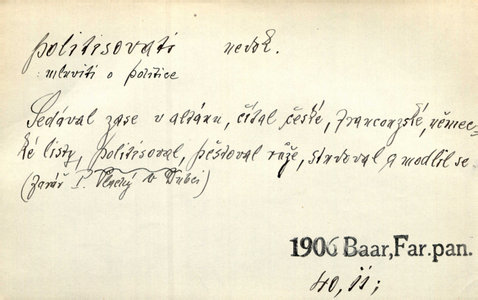 politisovati nedok.
: mluviti o politice
Sedával zase v altánu, čítal české, francouzské, němec-
ké listy, politisoval, pěstoval růže, studoval a modlil se
(farář I. v Dubci)
1906 Baar, Far. pan.
40, II;